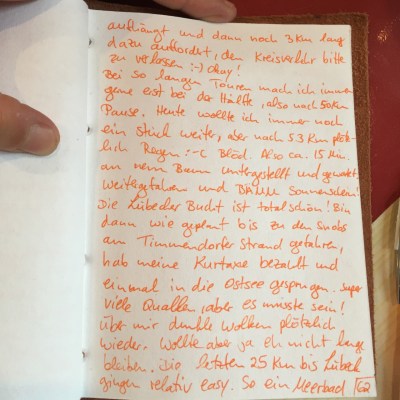 aufhängt und dann noch 3 km lang
dazu auffordert, den Kreisverkehr bitte
zu verlassen :-) Okay!
Bei so langen Touren mach ich immer
gerne erst bei der Hälfte, also nach 50km
Pause. Heute wollte ich immer noch
ein Stück weiter, aber nach 53 km plötz-
lich Regen :-( Blöd. Also ca. 15 Min.
an nem Baum untergestellt und gewartet,
weitergefahren und BÄÄM Sonnenschein!
Die Lübecker Bucht ist total schön! Bin
dann wie geplant bis zu den Snobs
an Timmendorfer Strand gefahren,
hab meine Kurtaxe bezahlt und
einmal in die Ostsee gesprungen. Super
viele Quallen, aber es musste sein!
Über mir dunkle Wolken plötzlich
wieder. Wollte aber ja eh nicht lange
bleiben. Die letzten 25 km bis Lübeck
gingen relativ easy. So ein Meerbad
62